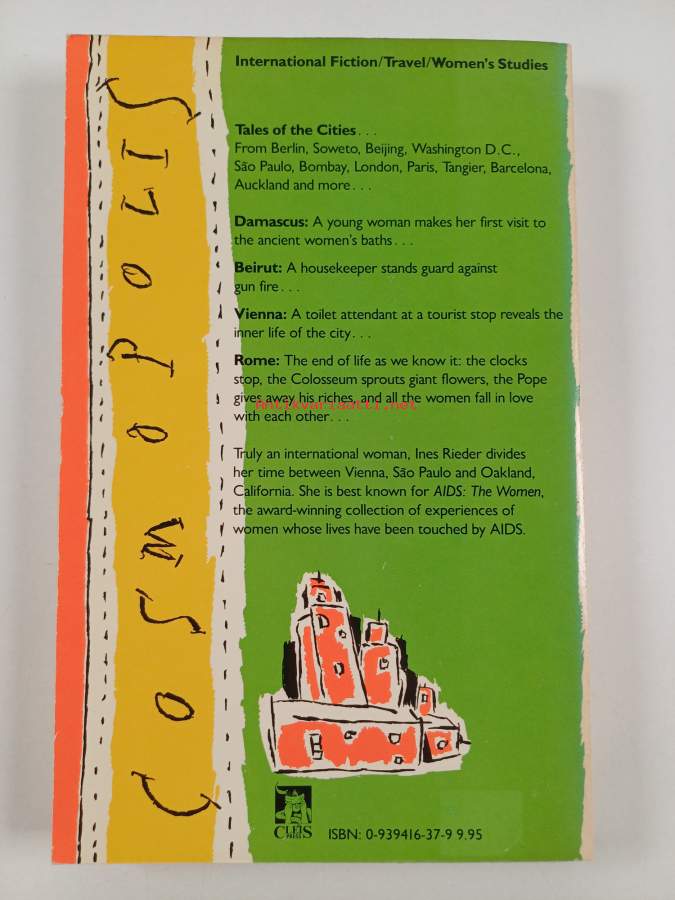 International Fiction/Travel/Women's Studies
Tales of the Cities . . .
From Berlin, Soweto, Beijing, Washington D.C.,
São Paulo, Bombay, London, Paris, Tangier, Barcelona,
Auckland and more . . .
Damascus: A young woman makes her first visit to
the ancient women's baths . . .
Beirut: A housekeeper stands guard against
gun fire . . .
Vienna: A toilet attendant at a tourist stop reveals the
inner life of the city . . .
Rome: The end of life as we know it: the clocks
stop, the Colosseum sprouts giant flowers, the Pope
gives away his riches, and all the women fall in love
Antikvariaatti.net
with each other . . .
Truly an international woman, Ines Rieder divides
her time between Vienna, São Paulo and Oakland,
California. She is best known for AIDS: The Women,
the award-winning collection of experiences of
women whose lives have been touched by AIDS.
COSMOPOLIS
CLEIS
PRESS
ISBN: 0-939416-37-9 9.95